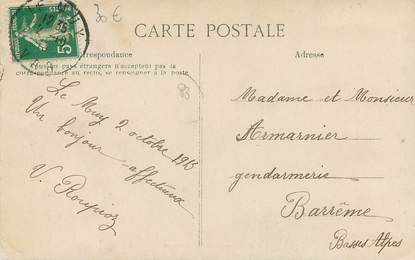 30 €
CARTE POSTALE
Correspondance
Tous les pays étrangers n'acceptent pas la
correspondance au recto, se renseigner à la poste
Adresse
5
83
Le Muy 2 octobre 19
Un bonjour
affectueux
V.
Madame et Monsieur
Armarnier
gendarmerie
Barrême
Basses Alpes